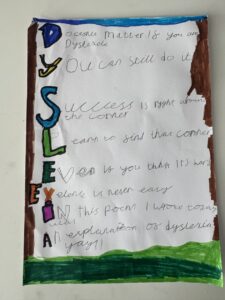 Dosent Matter If you are
Dyslexic
You can still do it
Success is right around
the corner
Learn to find that corner
Even if you think it's hard
is never easy
IN this Poem I wrote today
An explanation of dyslexia
yay!!